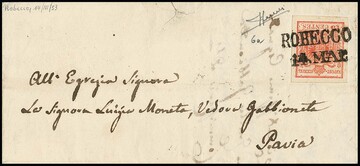 6a
ROBECCO
14. MAR.
All'a Egregia Signora
La Signora Luigia Moneta, Vedova Gabbioneta
Pavia